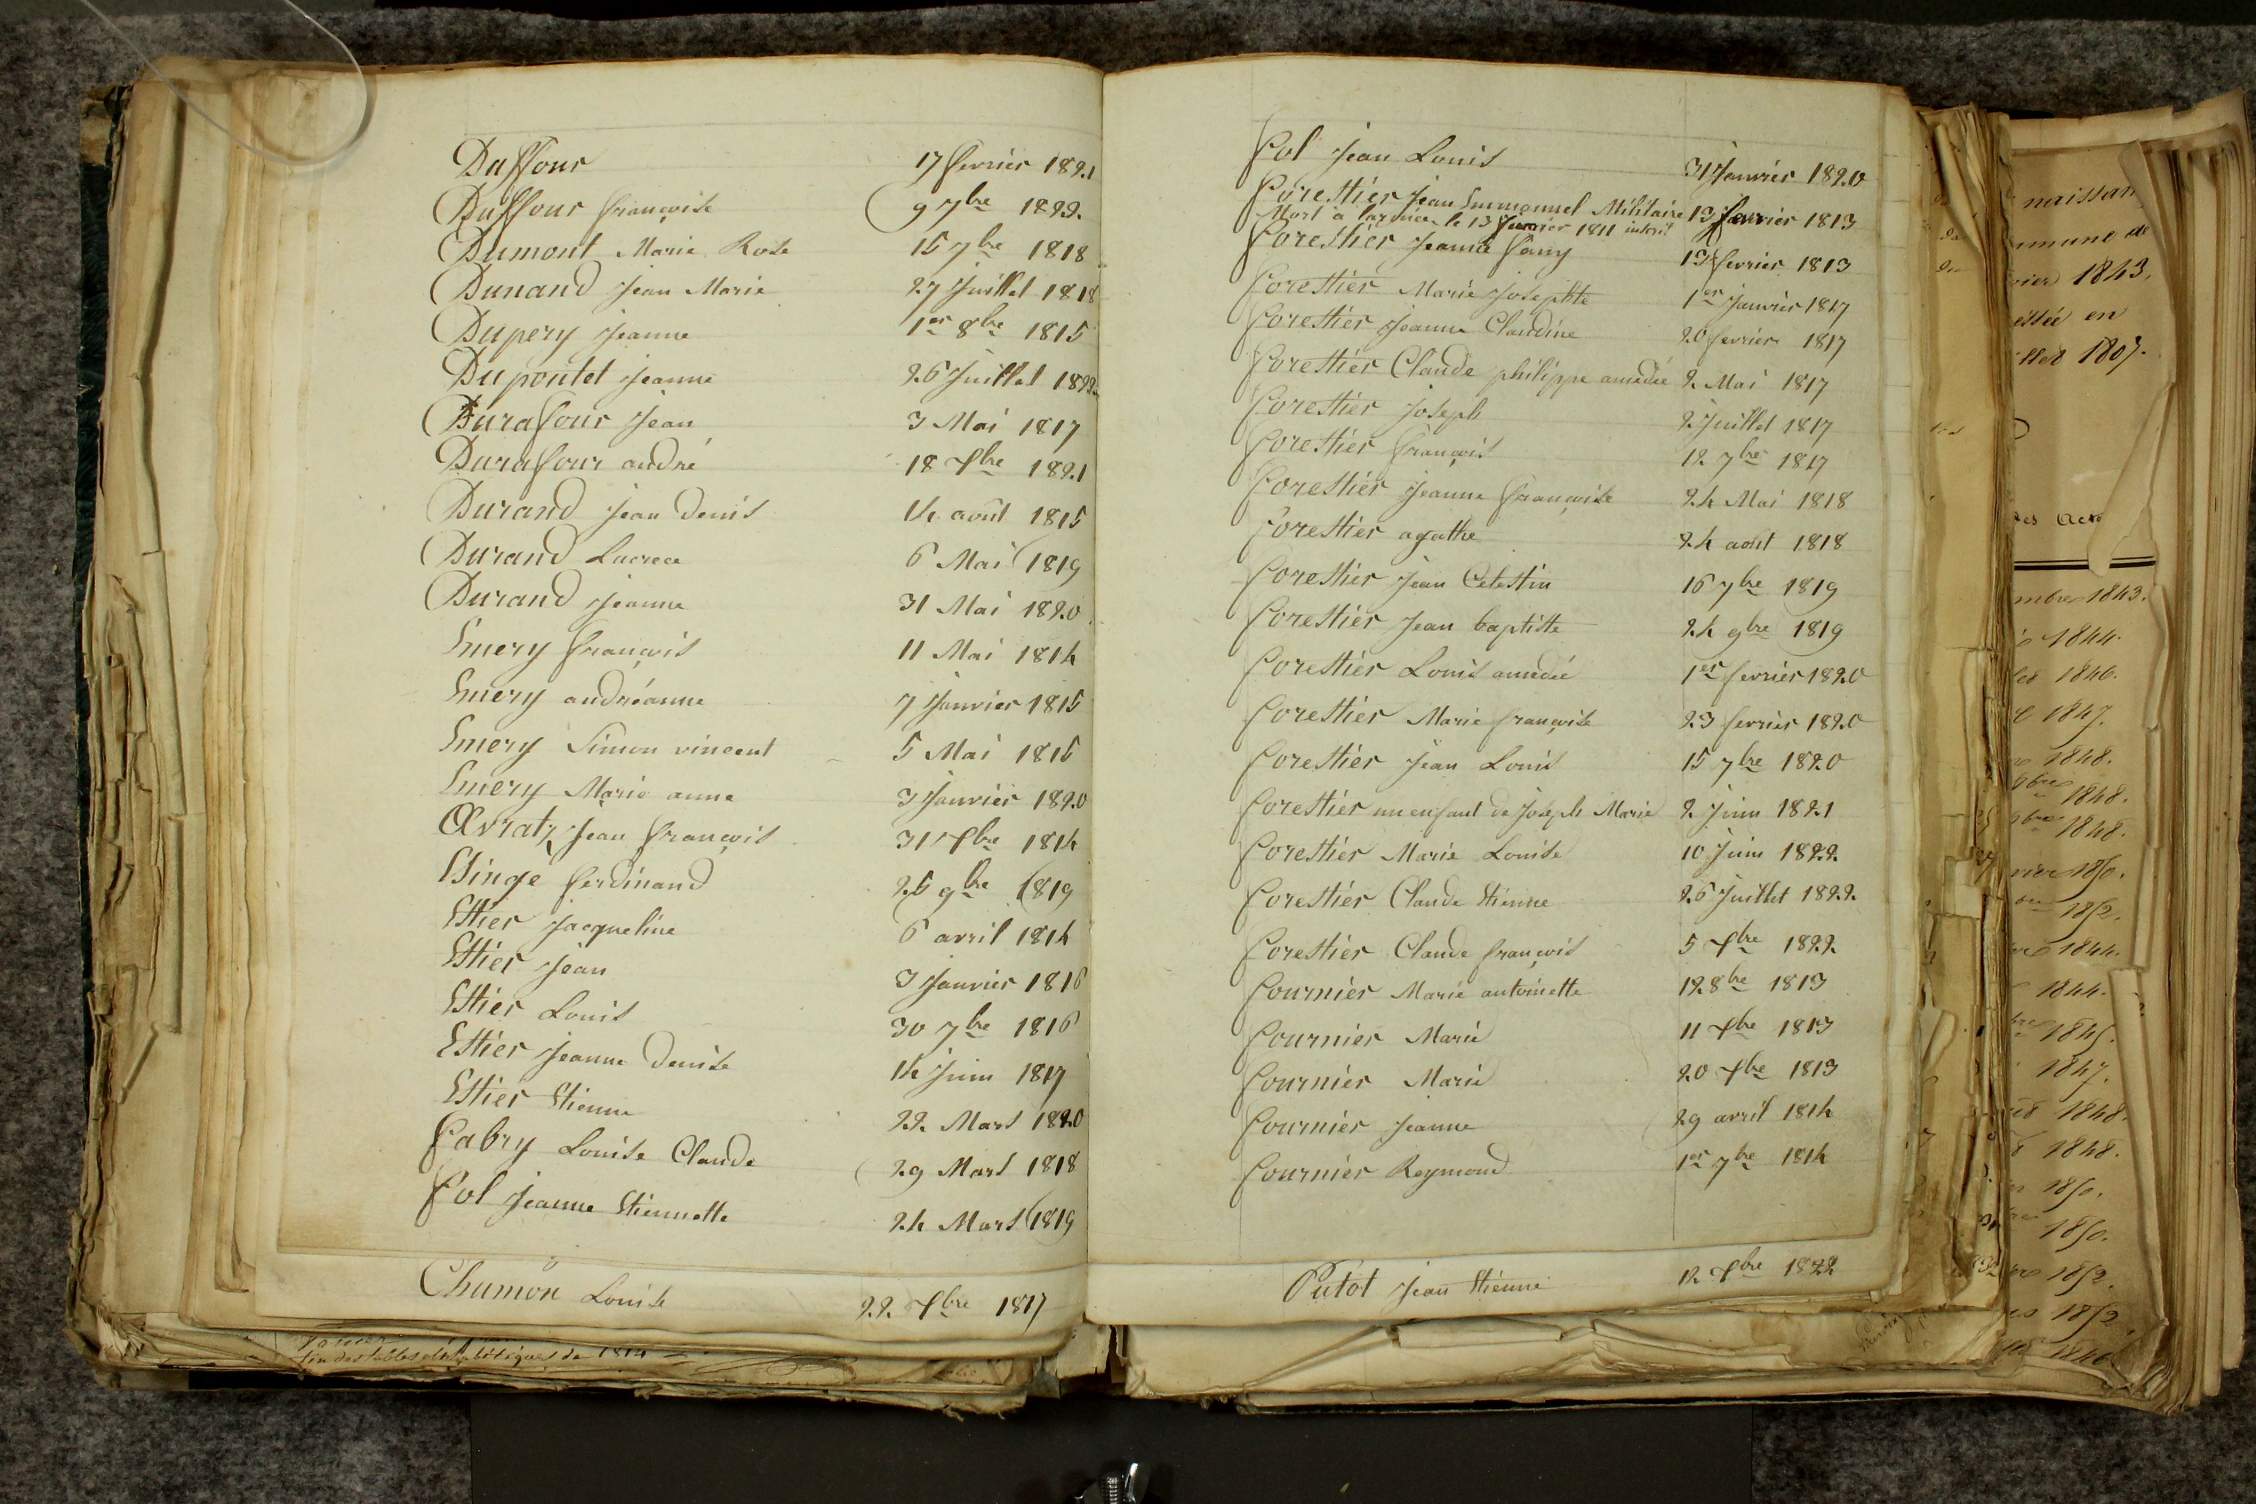 Duffour 17 fevrier 1821
Duffour françoise 9 7bre 1822
Dumont Marie Rose 15 7bre 1818
Dunand Jean Marie 27 Juillet 1818
Dupery Jeanne 1er 8bre 1815
Dupontet Jeanne 26 Juillet 1822
Durafour Jean 3 Mai 1817
Durafour andré 18 Xbre 1821
Durand Jean Denis 14 août 1815
Durand Lucrece 6 Mai 1819
Durand Jeanne 31 Mai 1820
Emery françois 11 Mai 1814
Emery andréanne 7 Janvier 1815
Emery Simon vincent 5 Mai 1816
Emery Marie anne 3 Janvier 1820
Œvratz Jean françois 31 Xbre 1814
Esinge ferdinand 25 9bre 1819
Estier jacqueline 6 avril 1814
Estier Jean 3 Janvier 1816
Estier Louis 30 7bre 1816
Estier Jeanne Denise 14 Juin 1817
Estier Etienne 22 Mars 1820
Fabry Louise Claude 29 Mars 1818
Fol Jeanne Etiennette 24 Mars 1819
Chumon Louise 22 Xbre 1817
Fol Jean Louis 31 Janvier 1820
Forestier Jean Emmanuel Militaire 13 fevrier 1813
Mort à larmée le 13 Janvier 1811 inscrit
Forestier Jeanne Fany 13 fevrier 1813
Forestier Marie Josephte 1er Janvier 1817
Forestier Jeanne Claudine 20 fevrier 1817
Forestier Claude philippe amédée 2 Mai 1817
Forestier Joseph 2 Juillet 1817
Forestier françois 12 7bre 1817
Forestier Jeanne françoise 24 Mai 1818
Forestier agathe 24 août 1818
Forestier Jean Celestin 16 7bre 1819
Forestier Jean baptiste 24 9bre 1819
Forestier Louis amedée 1er fevrier 1820
Forestier Marie françoise 23 fevrier 1820
Forestier Jean Louis 15 7bre 1820
Forestier un enfant de Joseph Marie 2 Juin 1821
Forestier Marie Louise 10 Juin 1822
Forestier Claude Etienne 26 Juillet 1822
Forestier Claude françois 5 Xbre 1822
Fournier Marie antoinette 12 8bre 1813
Fournier Marie 11 Xbre 1813
Fournier Marie 20 Xbre 1813
Fournier Jeanne 29 avril 1814
Fournier Reymond 1er 7bre 1814
Putot Jean Etienne 12 Xbre 1822
naissan
mmune de
1843.
en
1807.
mbre 1843.
1844.
1846.
1847.
1848.
9bre 1848.
1848.
1850.
1852.
1844.
1844.
1845.
1847.
1848.
1848.
1850.
1850.
1852.
1852
fin des tables alphabétiques de 1814